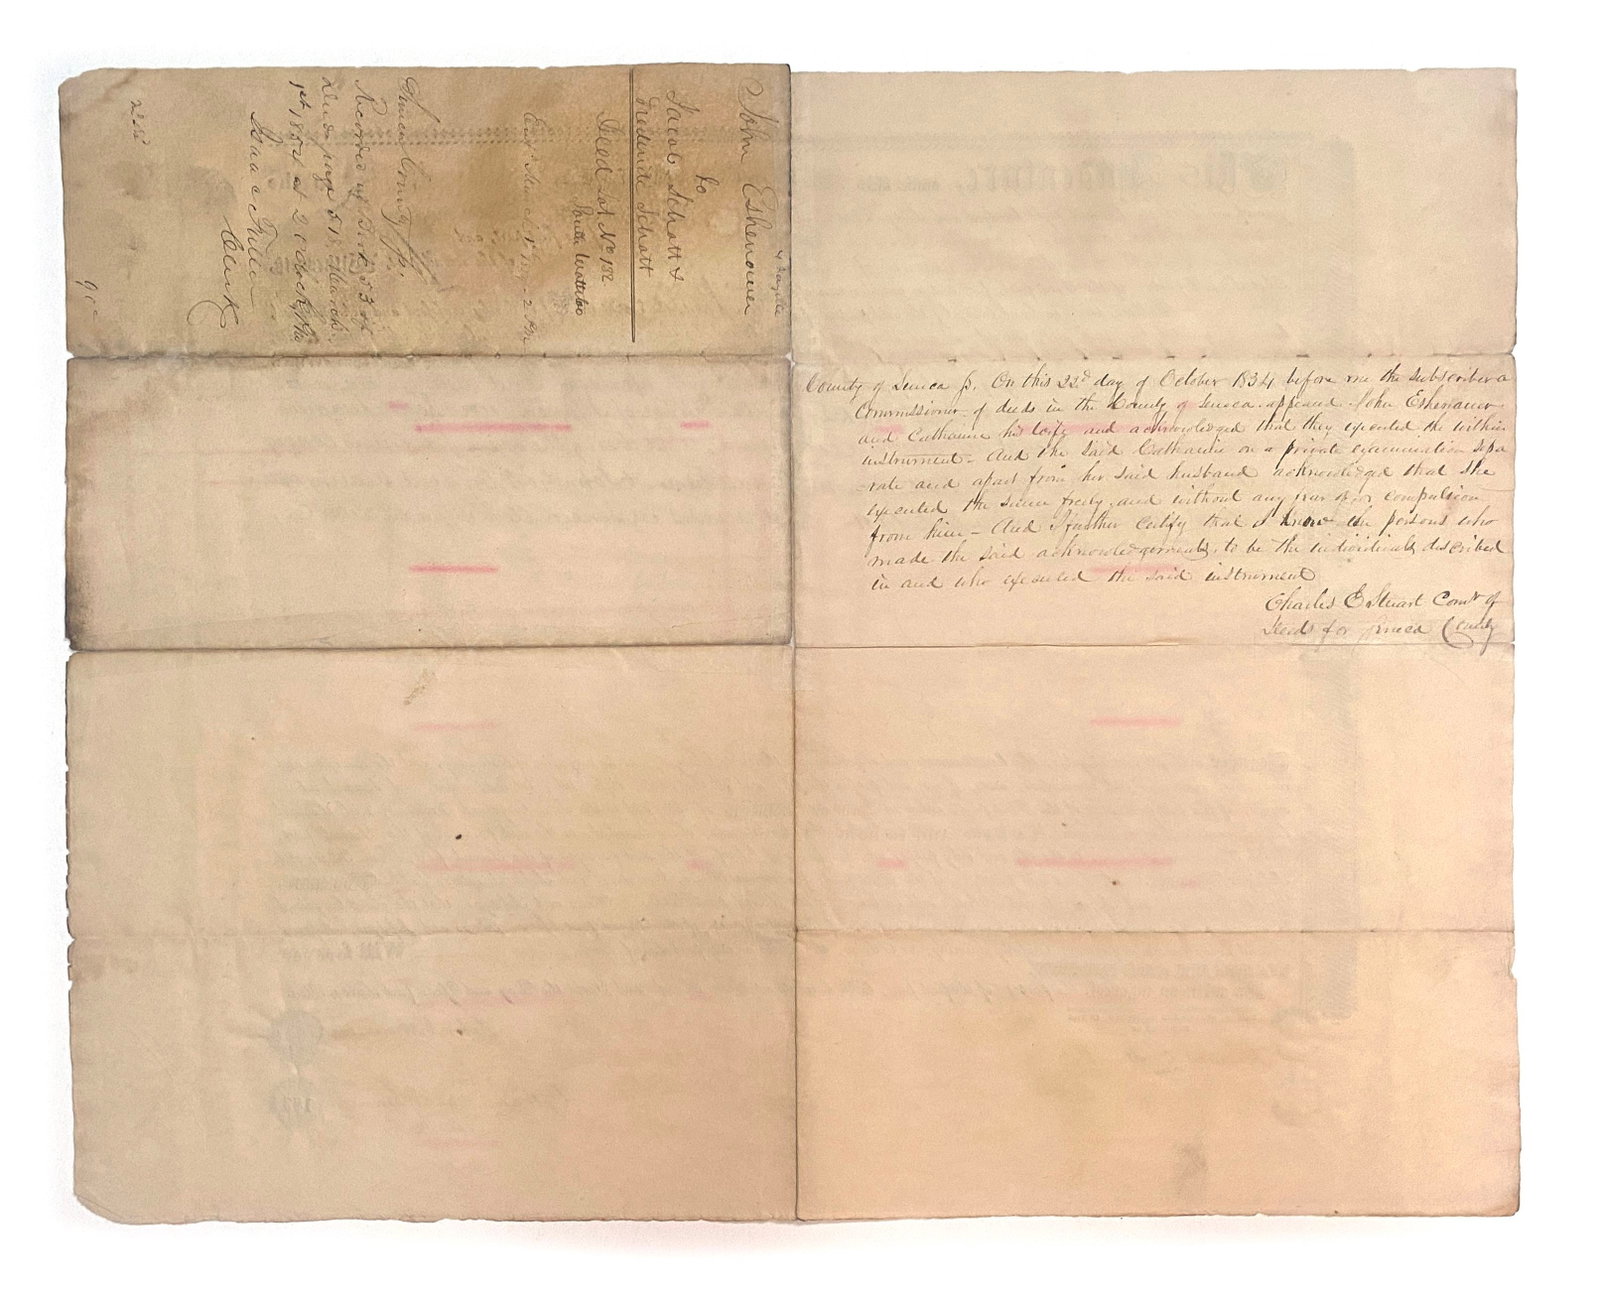 4 Fayette
John Eshenauer
to
Jacob Schott &
Frederick Schott
Deed Lot No 182
South Waterloo
Seneca County ss.
Recorded in Book 53 of
Deeds page 518. March
1st 1854 at 2 OClock, P.M.
Isaac Fuller
Clerk
County of Seneca ss. On this 22d day of October 1834 before me the subscriber a
Commissioner of deeds in the County of Seneca appeared John Eshenauer
and Catharine his wife and acknowledged that they executed the within
instrument - And the said Catharine on a private examination sepa
rate and apart from her said husband acknowledged that she
executed the same freely and without any fear of or compulsion
from him - And I further certify that I know the persons who
made the said acknowledgements, to be the individuals described
in and who executed the said instrument
Charles E Stuart Comr of
Deeds for Seneca County